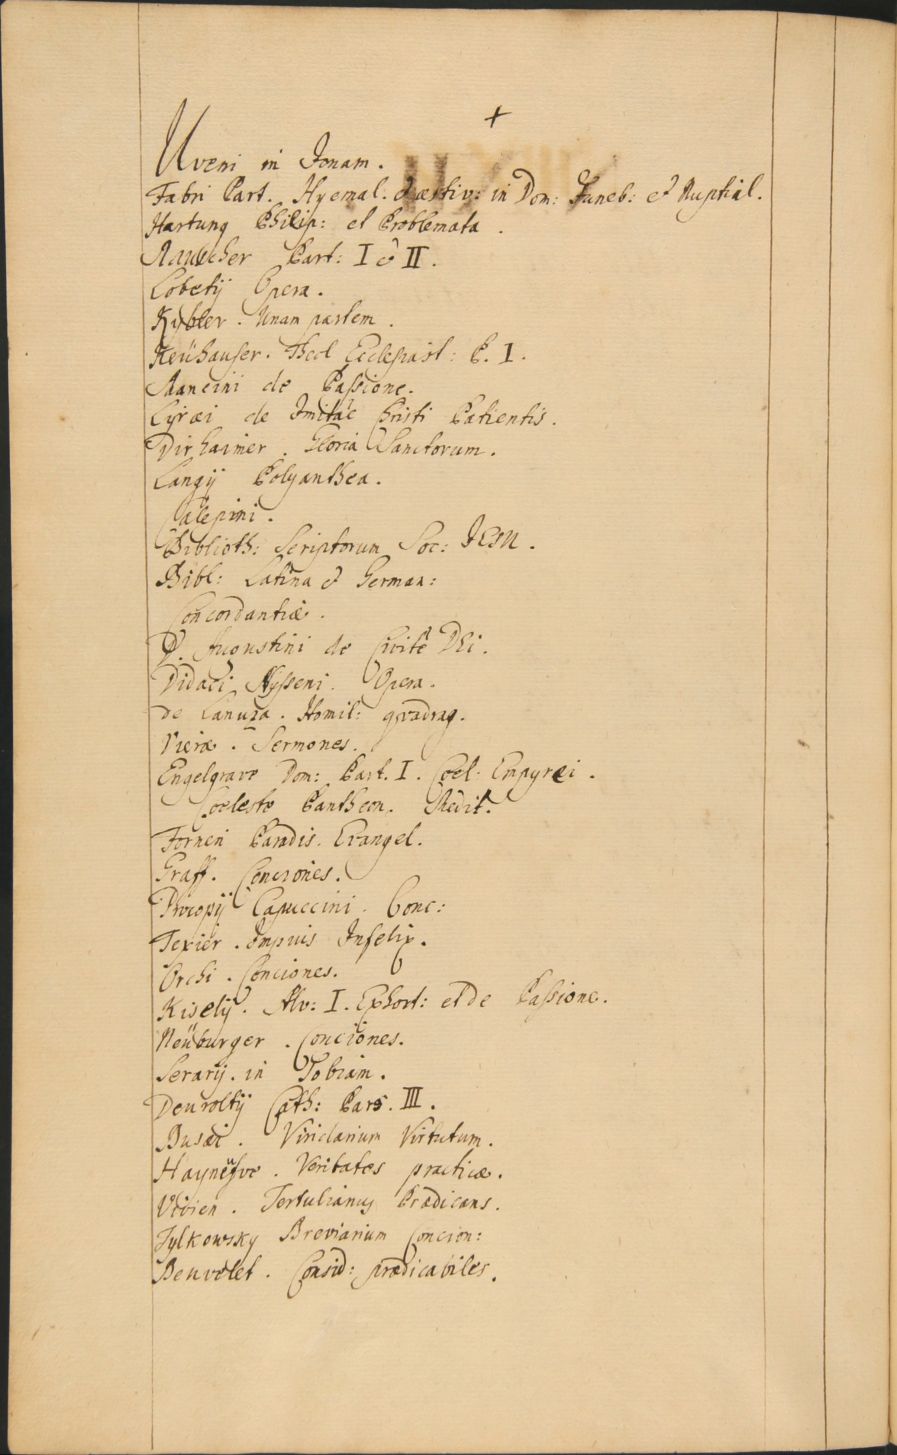 +
Uveni in Jonam.
Fabri Part. Hyemal. et æstiv: in Dom: Funeb: et Nuptial.
Hartung Philip: et Problemata.
Rauscher Part: I et II.
Lobetij Opera.
Kybler. Unam partem.
Neühauser. Theol Ecclesiast: P. I.
Mancini de Passione.
Lyræi de Imitãe Christi Patientis.
Dirhaimer. Gloria Sanctorum.
Langij Polyanthea.
Calepini.
Biblioth: Scriptorum Soc: JESU.
Bibl: Latina et German:
Concordantiæ.
D. Augustini de Civitẽ Dei.
Didaci Nysseni. Opera.
de Lanuza. Homil: qvadrag.
Vieræ. Sermones.
Engelgrave Dom: Part. I. Coel: Empyræi.
Coeleste Pantheon. Medit.
Forneri Paradis. Evangel.
Graff. Conciones.
Procopij Capuccini. Conc:
Texier. Impius Infelix.
Orchi. Conciones.
Kiselij. Alv: I. Exhort: et de Passione.
Neüburger. Conciones.
Serarij. in Tobiam.
Deuroltij Cath: Pars. III.
Busæi. Viridarium Virtutum.
Hayneüfve. Veritates practicæ.
Vivien. Tertulianus Prædicans.
Tylkowsky Breviarium Concion:
Beuvelet. Consid: prædicabiles.